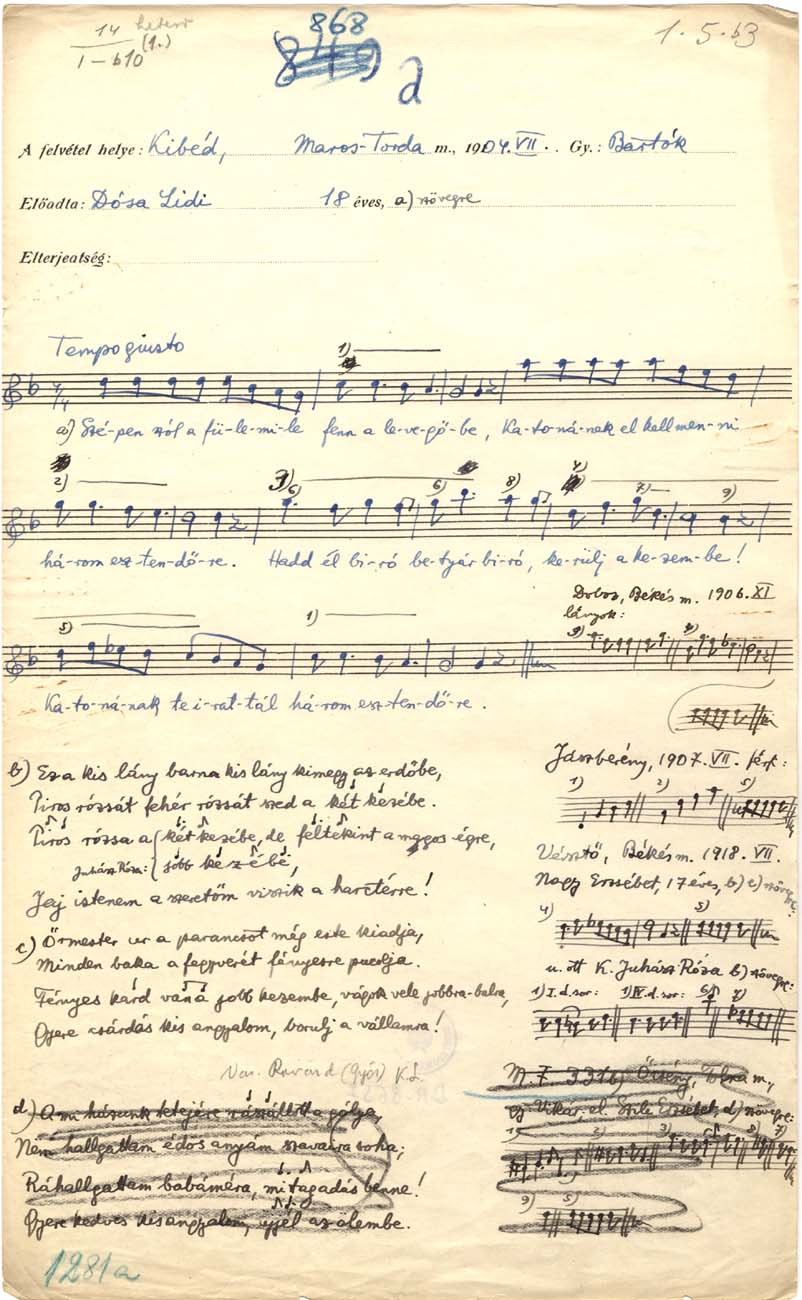 14
(1.)
I – b10
868
849
a
1·5·b3
A felvétel helye: Kibéd, Maros-Torda m., 1904. VII. Gy.: Bartók
Előadta: Dósa Lidi 18 éves, a) szövegre
Elterjeatség:
Tempo giusto
1)
a) Szé-pen szól a fü-le-mi-le fenn a le-ve-gő-be, Ka-to-ná-nak el kell men-ni
2) 3) 6) 6) 8) 4) 7) 9)
há-rom esz-ten-dő-re. Hadd él bi-ró be-tyár bi-ró, ke-rülj a ke-zem-be!
Doboz, Békés m. 1906. XI
lányok:
5) 1)
Ka-to-ná-nak te i-rat-tál há-rom esz-ten-dő-re.
Jászberény, 1907. VII. férf:
1) 2) 5)
b) Ez a kis lány barna kis lány kimegy az erdőbe,
Piros rózsát fehér rózsát szed a két kézébe.
Piros rózsa a két kezébe, de feltekint a magos égre,
Juhász Róza: jobb kezébe,
Jaj istenem a szeretőm viszik a harctérre!
Vésztő, Békés m. 1918. VII.
Nagy Erzsébet, 17 éves, b) c) szövegre:
4) 5)
u. ott K. Juhász Róza b) szövegre:
1) I. d. sor: 1) IV. d. sor: 6) 7)
c) Őrmester ur a parancsot még este kiadja,
Minden baka a fegyverét fényesre pucolja.
Fényes kard van a jobb kezembe, vágok vele jobbra-balra,
Gyere csárdás kis angyalom, borulj a vállamra!
Var. Ravazd (Győr) K. L.
M. F. 331b) Őcsény, Tolna m.,
gy. Vikár, el. Szili Erzsébet, d) szövegre:
1) 2) 3) 8) 7)
9) 5)
d) A mi házunk tetejére rászállott a gólya,
Nem hallgattam édös anyám szavaira soha;
Ráhallgattam babáméra, mi tagadás benne!
Gyere kedves kis angyalom, üjjél az ölembe.
1281a